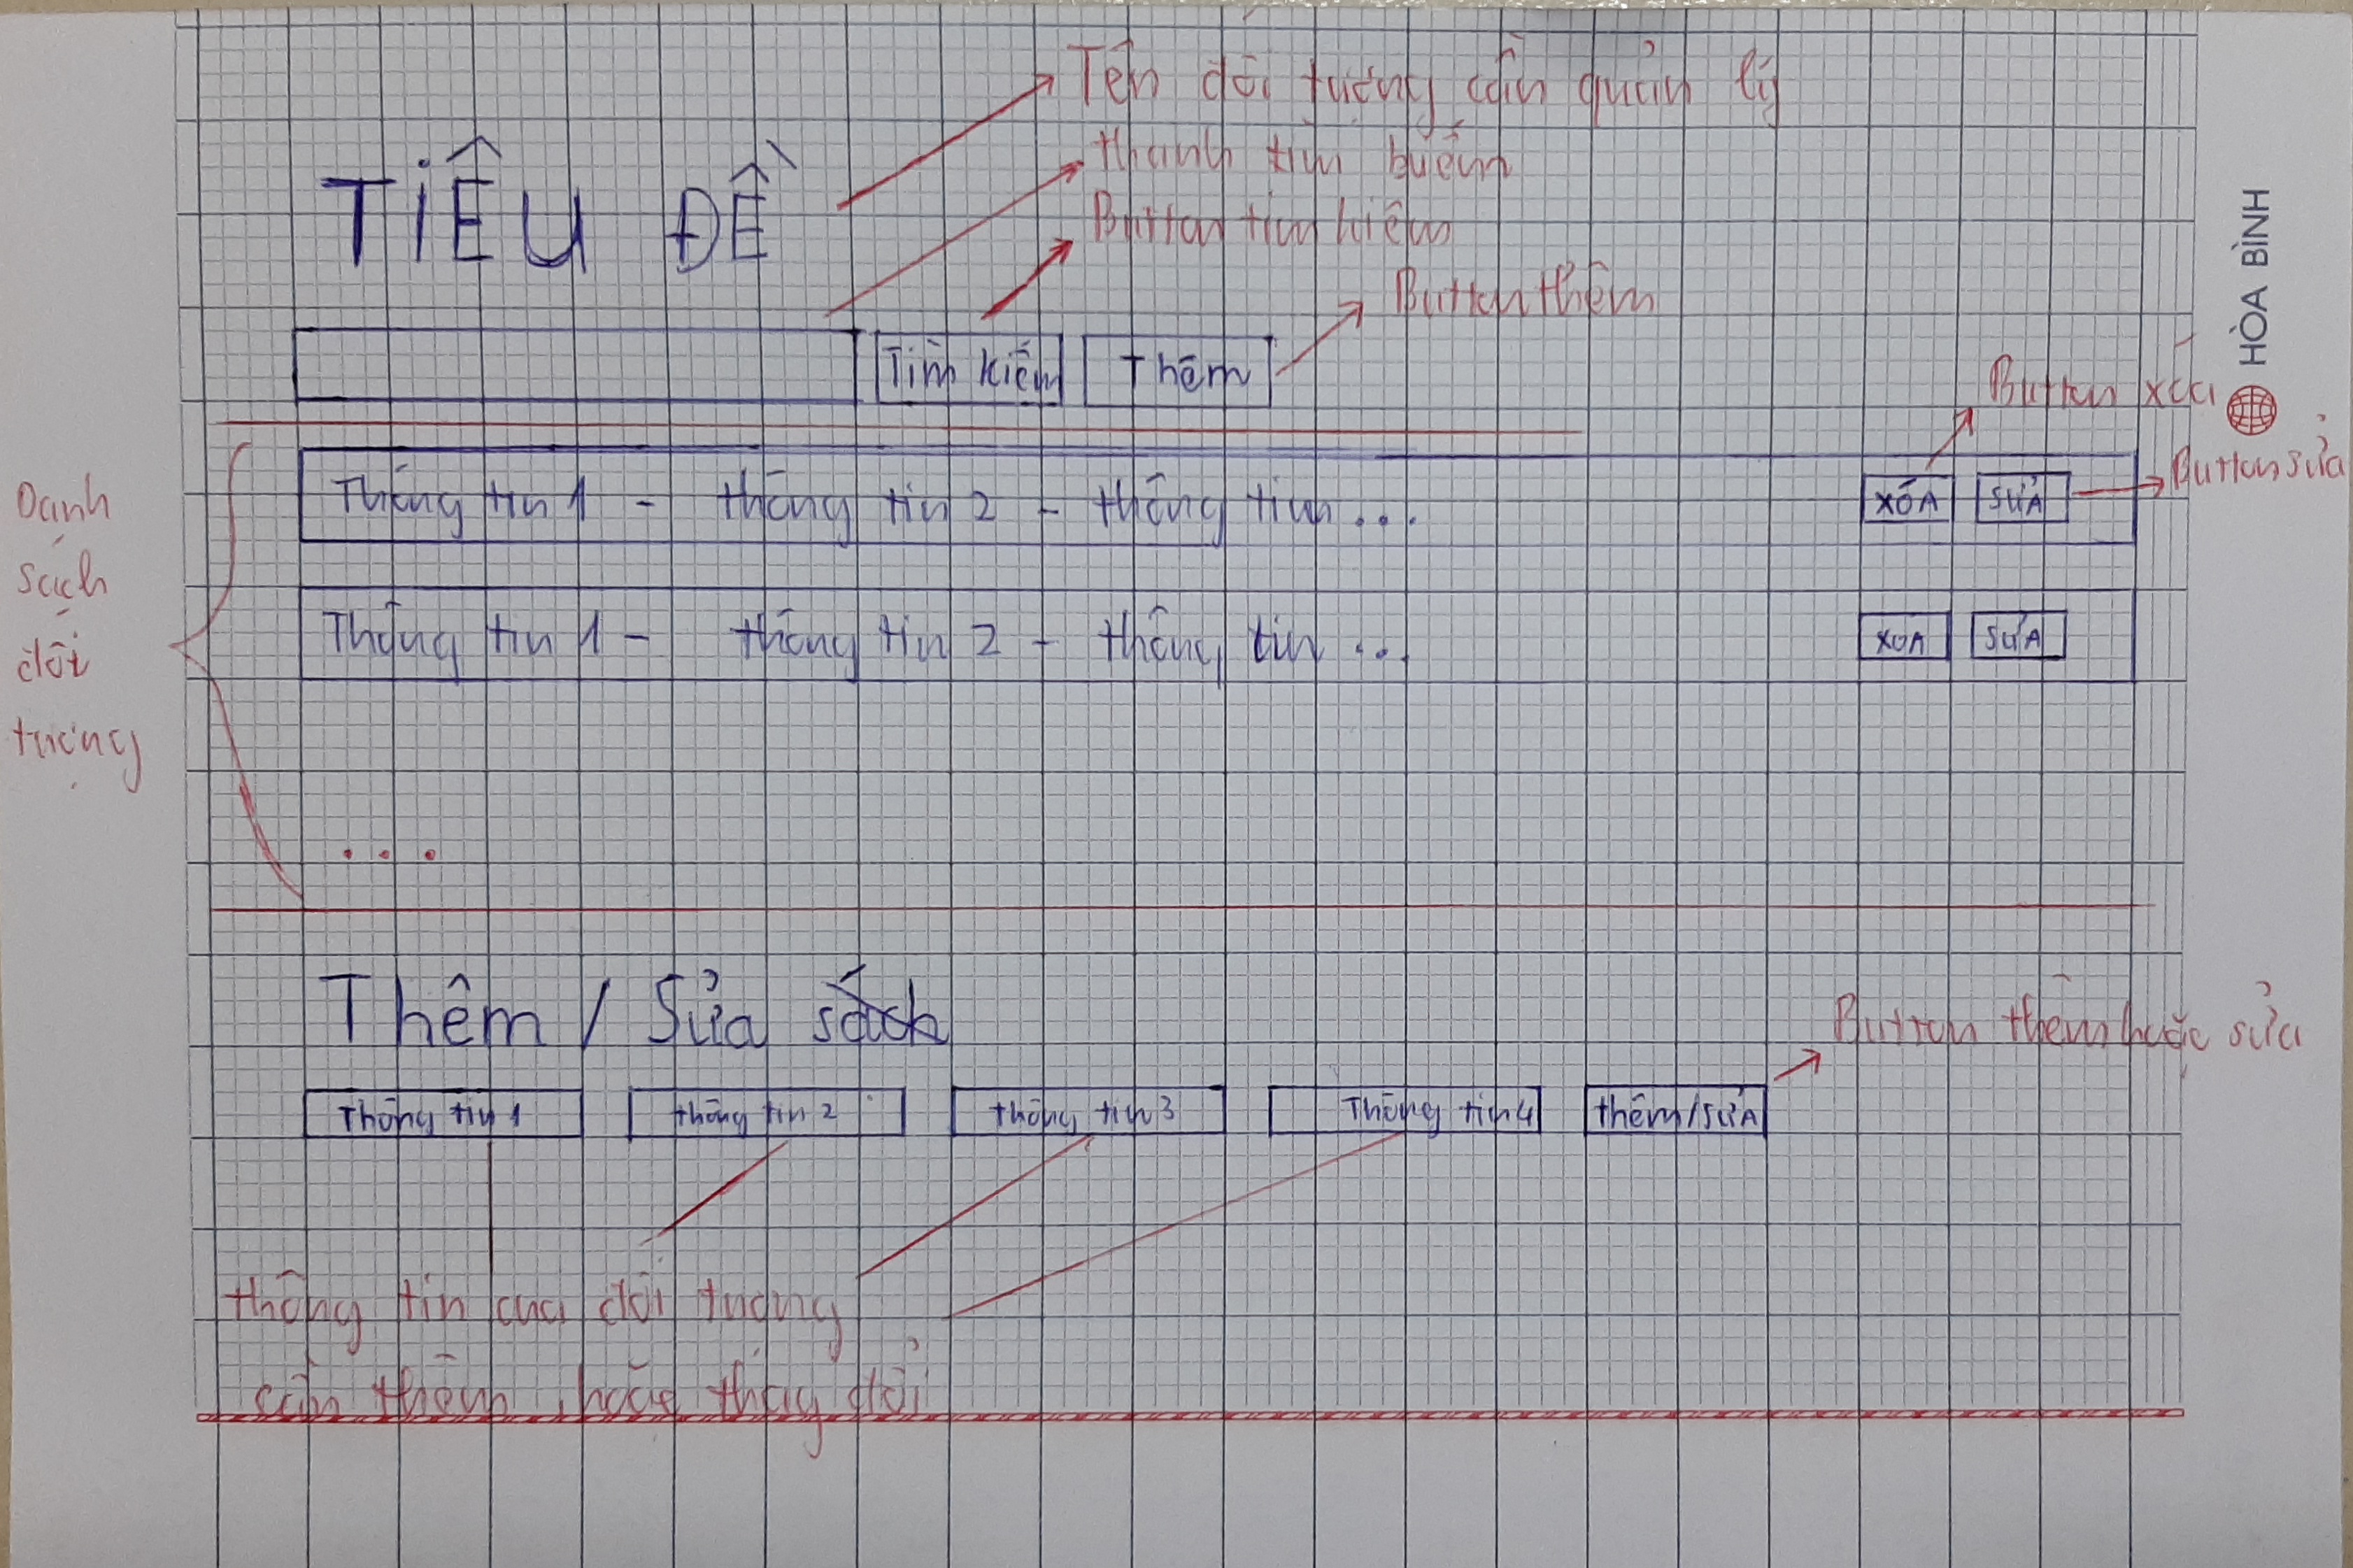 Tên đối tượng cần quản lý
thanh tìm kiếm
TIÊU ĐỀ
Button tìm kiếm
Button thêm
HÒA BÌNH
Tìm kiếm
Thêm
Button xóa
Button sửa
Thông tin 1 - thông tin 2 - thông tin ...
XÓA
SỬA
Danh
sách
đối
tượng
Thông tin 1 - thông tin 2 - thông tin ...
XÓA
SỬA
...
Thêm / Sửa sách
Button thêm hoặc sửa
Thông tin 1
thông tin 2
thông tin 3
Thông tin 4
thêm/SỬA
thông tin của đối tượng
cần thêm, hoặc thay đổi